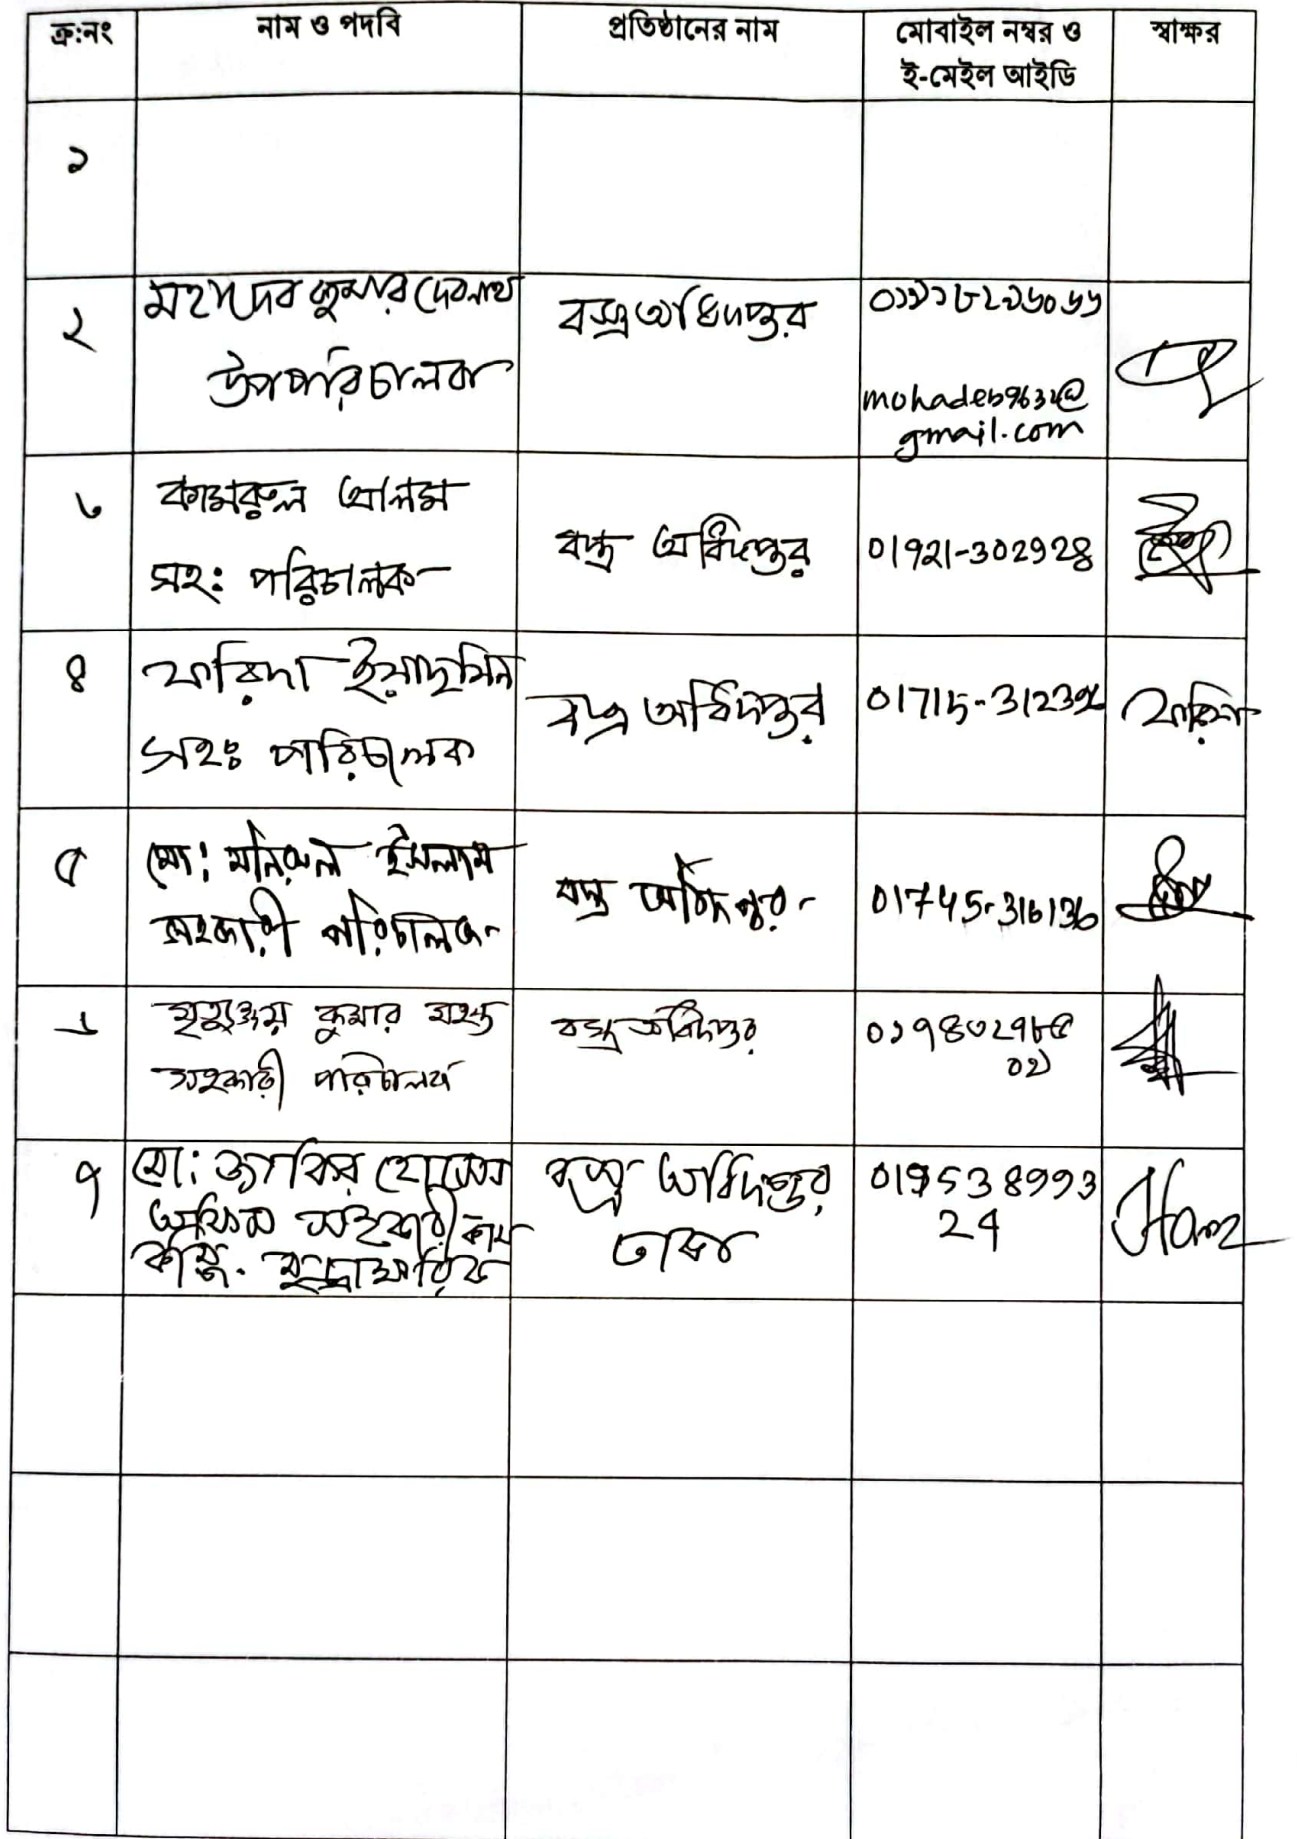 ক্র:নং
নাম ও পদবি
প্রতিষ্ঠানের নাম
মোবাইল নম্বর ও
ই-মেইল আইডি
স্বাক্ষর
১
২
মহাদেব কুমার দেবনাথ
উপপরিচালক
বস্ত্র অধিদপ্তর
gmail.com
৩
কামরুল আলম
সহ: পরিচালক
বস্ত্র অধিদপ্তর
01921-302928
৪
ফরিদা ইয়াছমিন
সহঃ পরিচালক
বস্ত্র অধিদপ্তর
01715-
ফরিদা
৫
মো: মনিরুল ইসলাম
সহকারী পরিচালক
বস্ত্র অধিদপ্তর
01745-316136
৬
মৃত্যুঞ্জয় কুমার
সহকারী পরিচালক
বস্ত্র অধিদপ্তর
৭
মো: জাকির হোসেন
অফিস সহকারী কাম
মুদ্রাক্ষরিক
বস্ত্র অধিদপ্তর,
ঢাকা
24